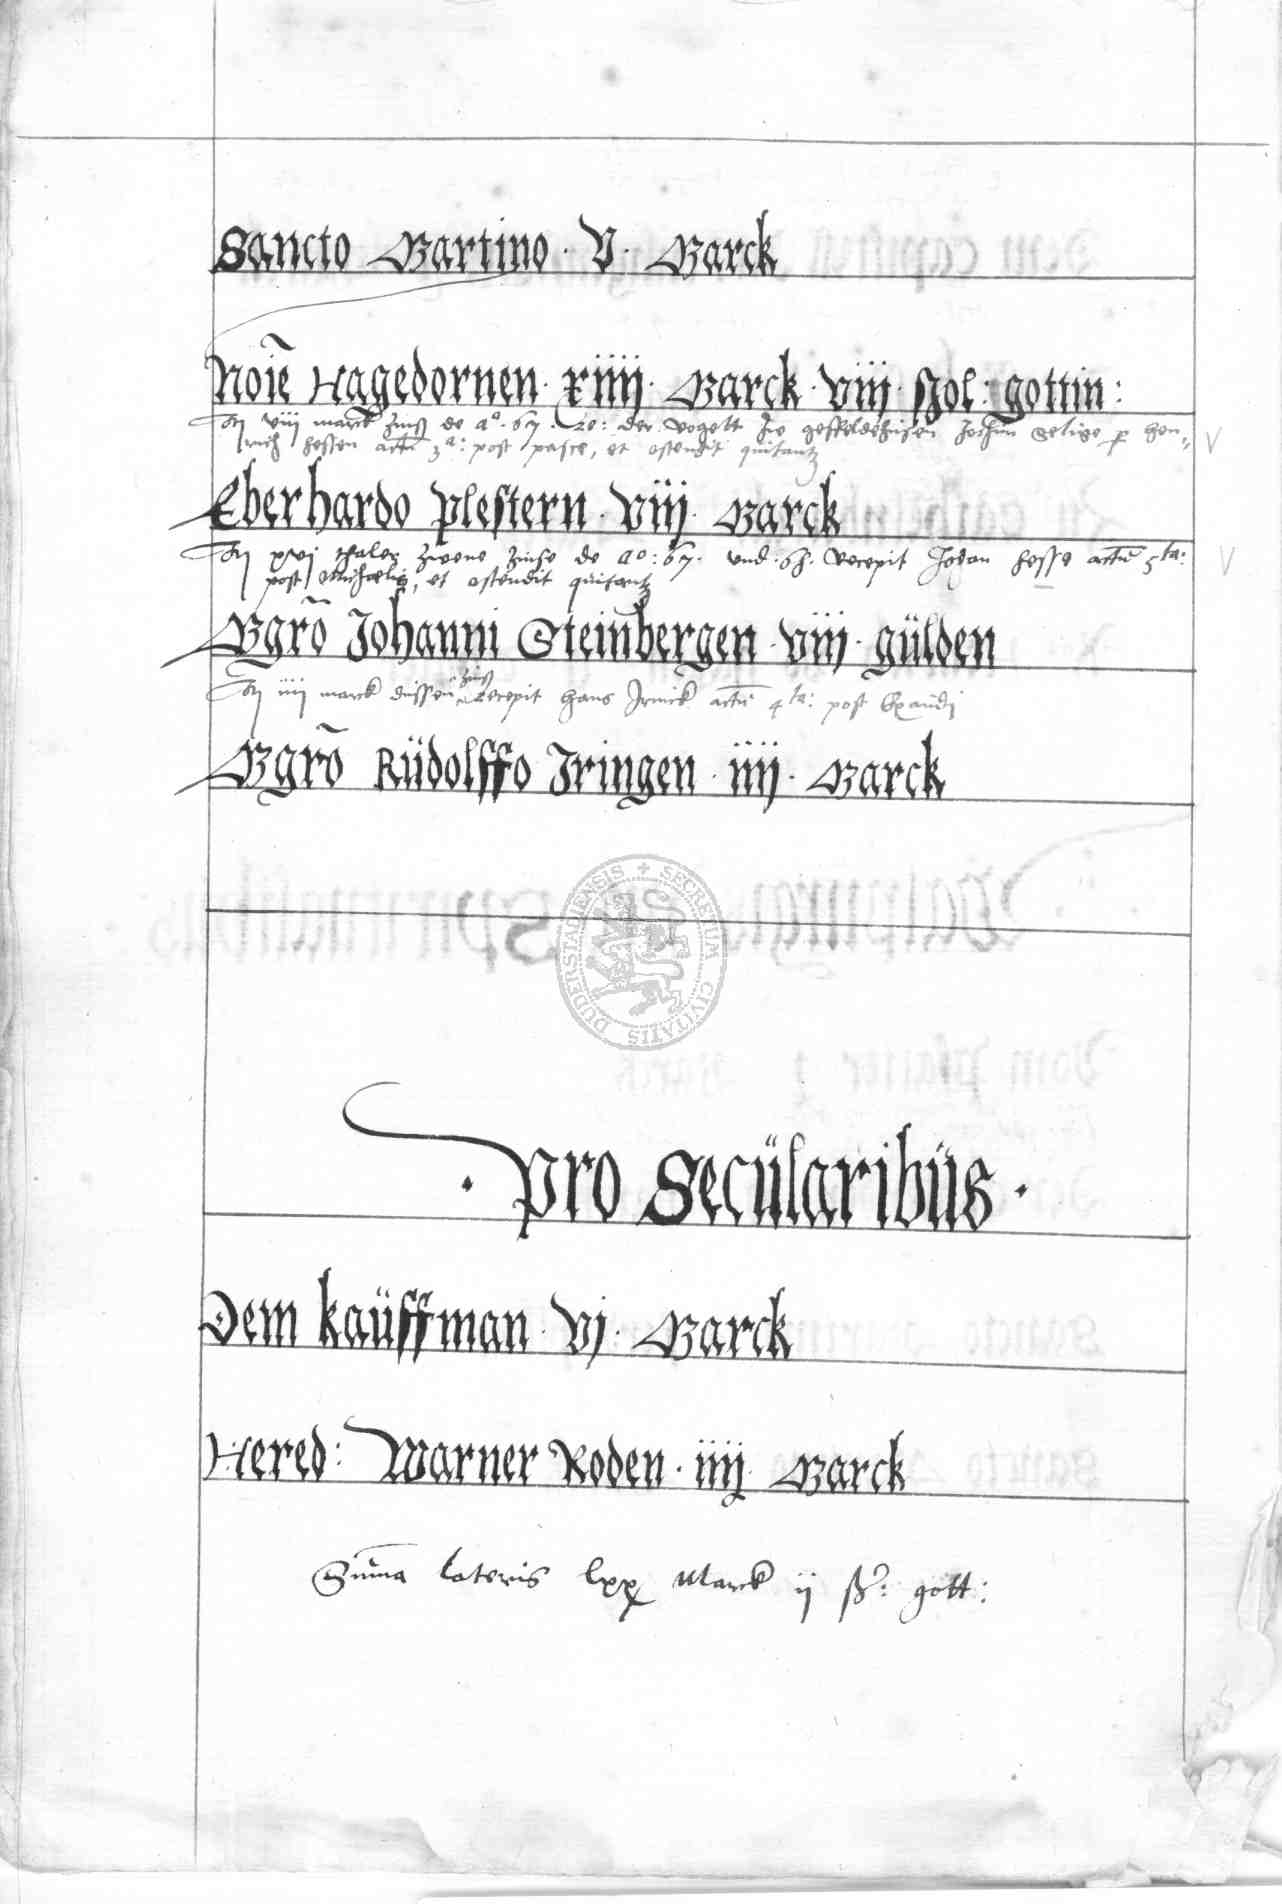 Sancto Martino · V · Marck
Noiē Hagedornen · xiiij · Marck · viij · ſol : gottin :
viij marck zinß de aº · 67 · Re : der Vogett zw geffeldehuſen Jochim Selige p hen-
rich heſſen actū 3ª : post paſce, et oſtendit quitantz
Eberhardo pleſtern · viij · Marck
xvj thaler zwene zinſe de aº : 67 · und · 68 · Recepit Johan heſſe actū 5ta :
post Michaelis, et oſtendit quitantz
Mgrō Johanni Steinbergen · viij · gülden
iiij marck duſſen zinß Recepit Hans Irinck actū 4ta : poſt Exaudi
Mgrō Rüdolffo Iringen · iiij · Marck
SECRETUM CIVITATIS DUDERSTADIENSIS
· Pro Secülaribüs ·
Dem kaüffman · vj · Marck
Hered : Warner Roden · iiij · Marck
Suma lateris lxx Marck ij ß : gott :